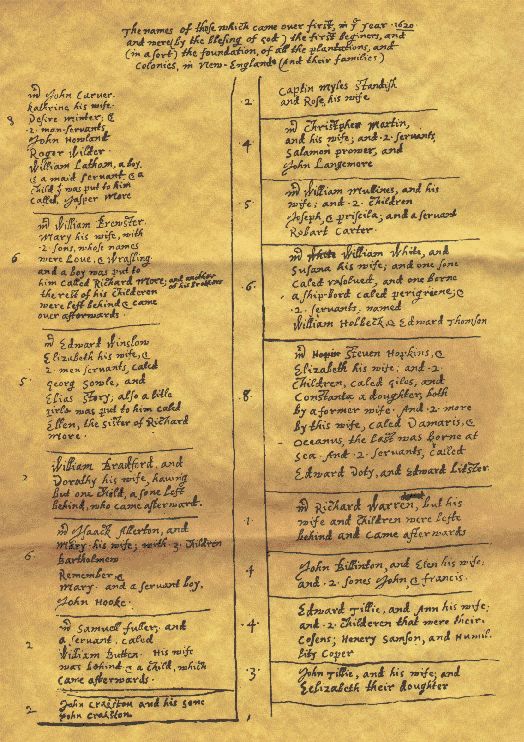 The names of those which came over first, in yᵉ year ·1620·
and were (by the blesing of god) the first beginers, and
(in a sort) the foundation, of all the plantations, and
Colonies, in New-England· (And their families)
8
mʳ John Carver·
katherine his wife·
Desire minter; &
·2· man-servants
John Howland
Roger Wilder
William Latham, a boy·
& a maid servant, & a
child yᵗ was put to him
called, Jasper More
6
mʳ William Brewster·
Mary his wife, with
·2· sons, whose names
were Love, & Wrasling
and a boy was put to
him called Richard More; and another
of his brothers
the rest of his Children
were left behind & came
over afterwards·
5
mʳ Edward Winslow
Elizabeth his wife, &
·2· men servants, caled
georg Sowle, and
Elias Story; also a litle
girle was put to him caled
Ellen, the sister of Richard
More·
2
William Bradford, and
Dorathy his wife, having
but one child, a sone left
behind, who came afterward·
6
mʳ Isaack Allerton, and
Mary· his wife; with ·3· Children
Bartholmew
Remember, &
Mary· and a servant boy,
John Hooke·
2
mʳ Samuell fuller; and
a servant, caled
William Butten· His wife
was behind & a child, which
came afterwards·
2
John Crakston and his sone
John Crakston
·2·
Captin Myles Standish
and Rose, his wife
4
mʳ Christpher Martin,
and his wife; and ·2· servants,
Salamon prower, and
John Langemore
·5·
mʳ William Mullines, and his
wife; and ·2· Children
Joseph, & priscila; and a servant
Robart Carter·
·6·
mʳ William White, and
Susana his wife; and one sone
caled resolved, and one borne
a ship-bord caled perigriene; &
·2· servants, named
William Holbeck, & Edward Thomson
·8·
mʳ Steven Hopkins, &
Elizabeth his wife; and ·2·
Children, caled giles, and
Constanta a doughter, both
by a former wife· And ·2· more
by this wife, caled Damaris, &
Oceanus, the last was borne at
sea· And ·2· servants, called
Edward Doty, and Edward Litster·
1
mʳ Richard Warren, but his
wife and Children were lefte
behind and came afterwards
4
John Billinton, and Elen his wife;
and ·2· sones John, & francis·
·4·
Edward Tillie, and Ann his wife;
and ·2· Childeren that were their·
Cosens; Henery Samson, and Humil-
lity Coper
·3·
John Tillie, and his wife; and
Eelizabeth their doughter